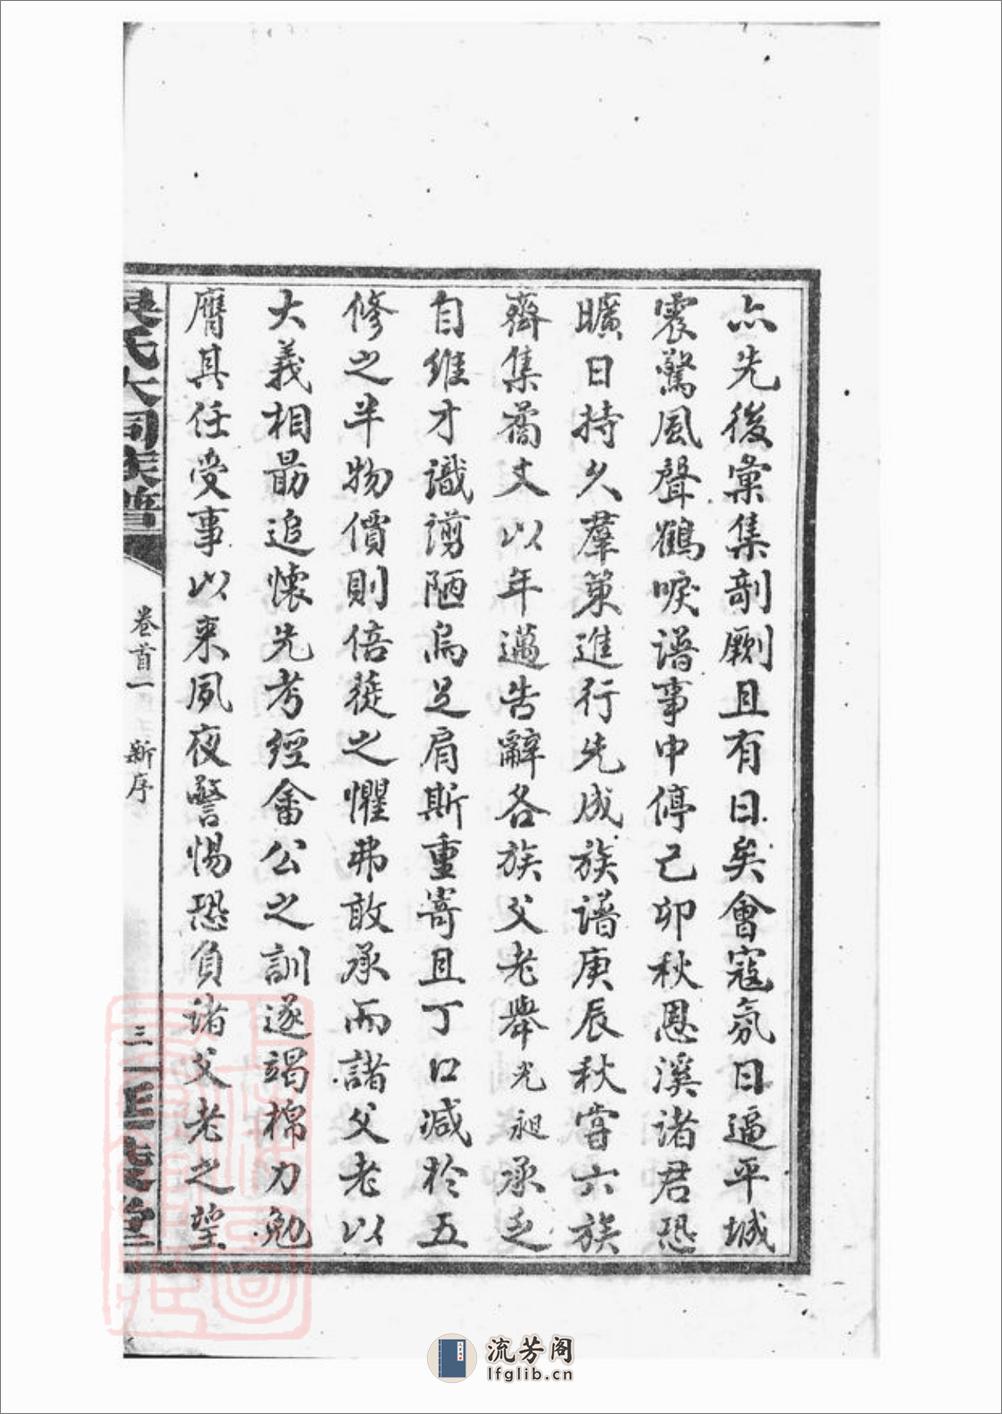 亦先後彙集剞劂且有日矣會寇氛日逼平城
震驚風聲鶴唳譜事中停己卯秋恩溪諸君恐
曠日持久羣策進行先成族譜庚辰秋嘗六族
齊集蕎丈以年邁告辭各族父老舉光昶承乏
自維才識谫陋烏足肩斯重寄且丁口減於五
修之半物價則倍蓰之懼弗敢承而諸父老以
大義相勗追懷先考經畬公之訓遂竭棉力勉
膺其任受事以來夙夜警惕恐負諸父老之望
吳氏大同族譜
卷首一
新序
三
流芳阁
lfglib.cn